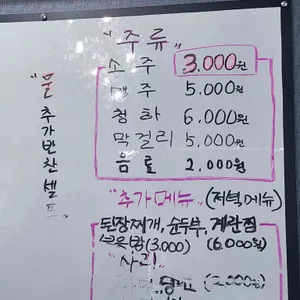 "물
추가반찬셀프"
"주류"
소주 3,000원
맥주 5,000원
청하 6,000원
막걸리 5,000원
음료 2,000원
"추가메뉴" (저녁메뉴)
된장찌개, 순두부, 계란찜
(3,000) (6,000원)
"사리"